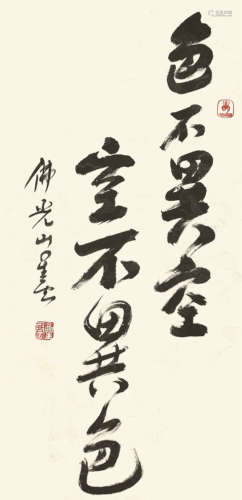 色不異空
空不異色
佛光山星雲